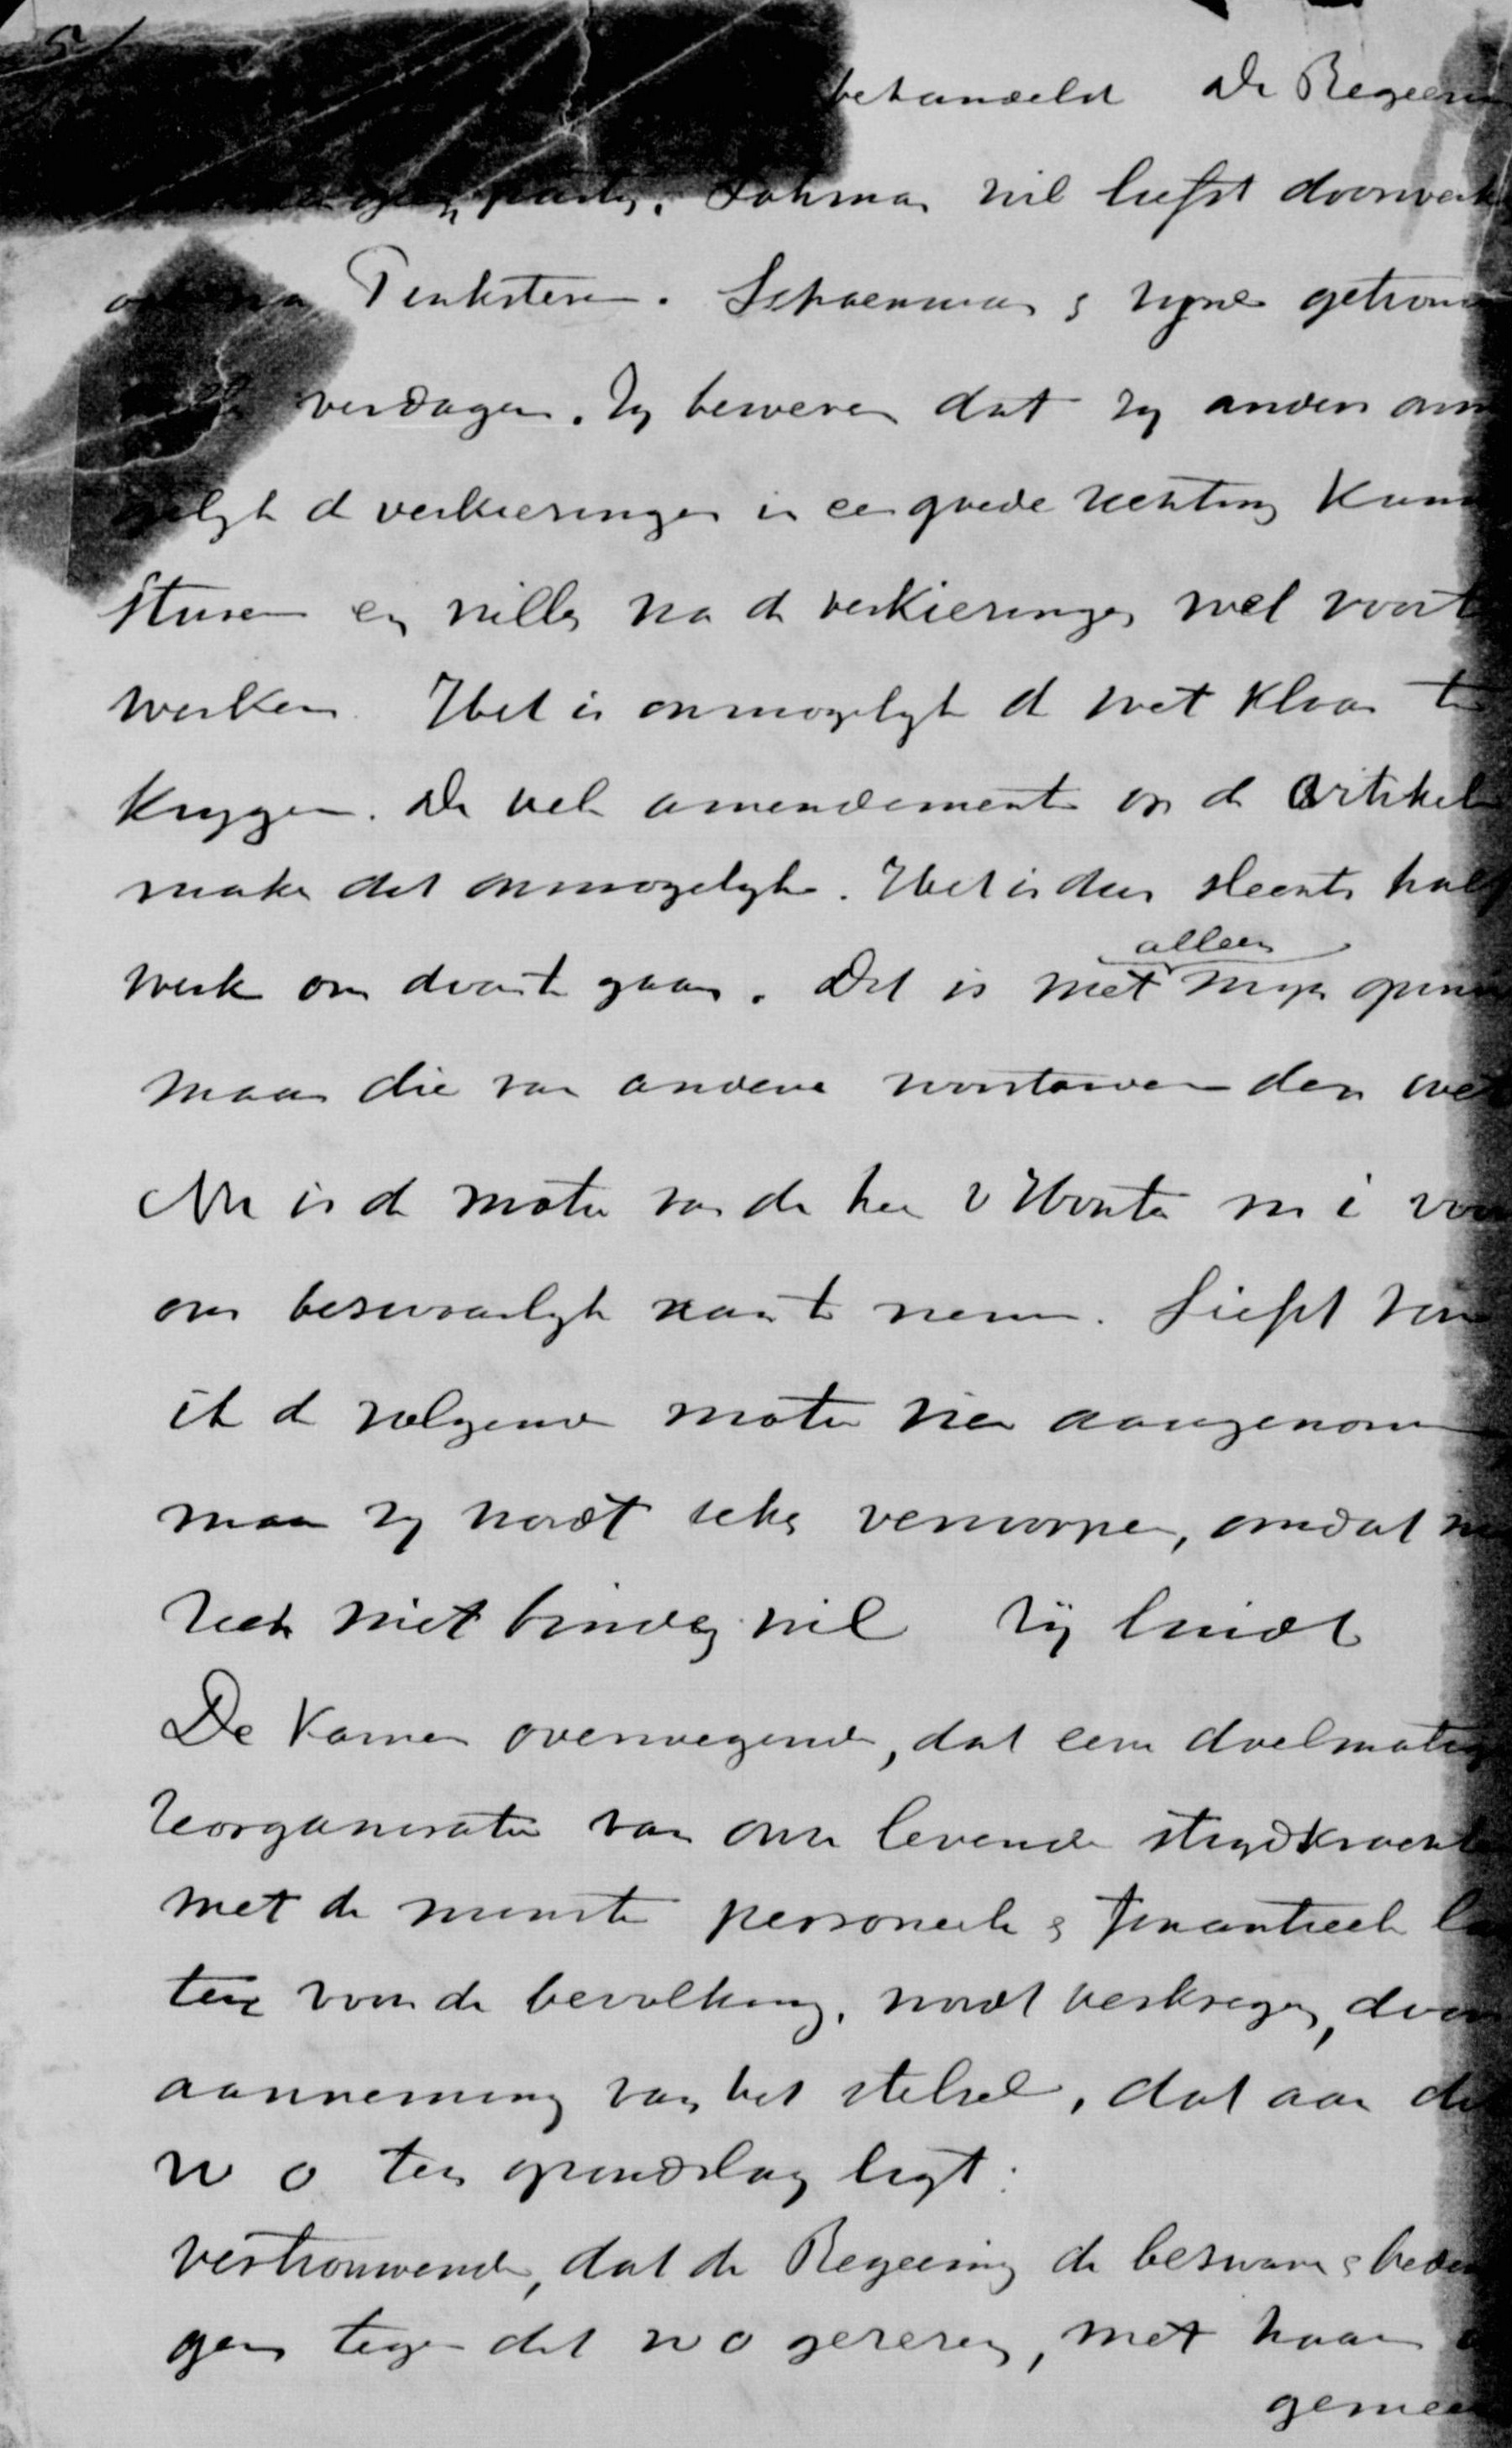 behandeld De Regeerin
party. Lohman wil liefst doorwerk
na Pinksteren. Schaepman & zyne getrouw
verdagen. Zy beweren dat zy anders onm
gelyk d verkiezingen in een goede richting kunn
sturen en willen na d verkiezingen wel voort
werken. Het is onmogelyk d wet klaar te
krygen. De vele amendementen op d Artikel
maken dat onmogelyk. Het is dan slechts half
werk om door te gaan. Dit is niet alleen myn opini
maar die van andere voorstanders der wet
Nu is d motie van de heer v Houten m i voor
ons bezwaarlyk aan te nemen. Liefst zou
ik d volgende motie zien aangenom
maar zy wordt zeker verworpen, omdat m
zich niet binden wil Zij luidt
De Kamer overwegende, dat eene doelmatig
reorganisatie van onze levende strydkracht
met de minste personeele & finantieele la
ten voor de bevolking, wordt verkregen, door
aanneming van het stelsel, dat aan de
w o ten grondslag ligt:
vertrouwende, dat de Regeering de bezwaren & beden
gen tegen dit w o gerezen, met haar
gemee